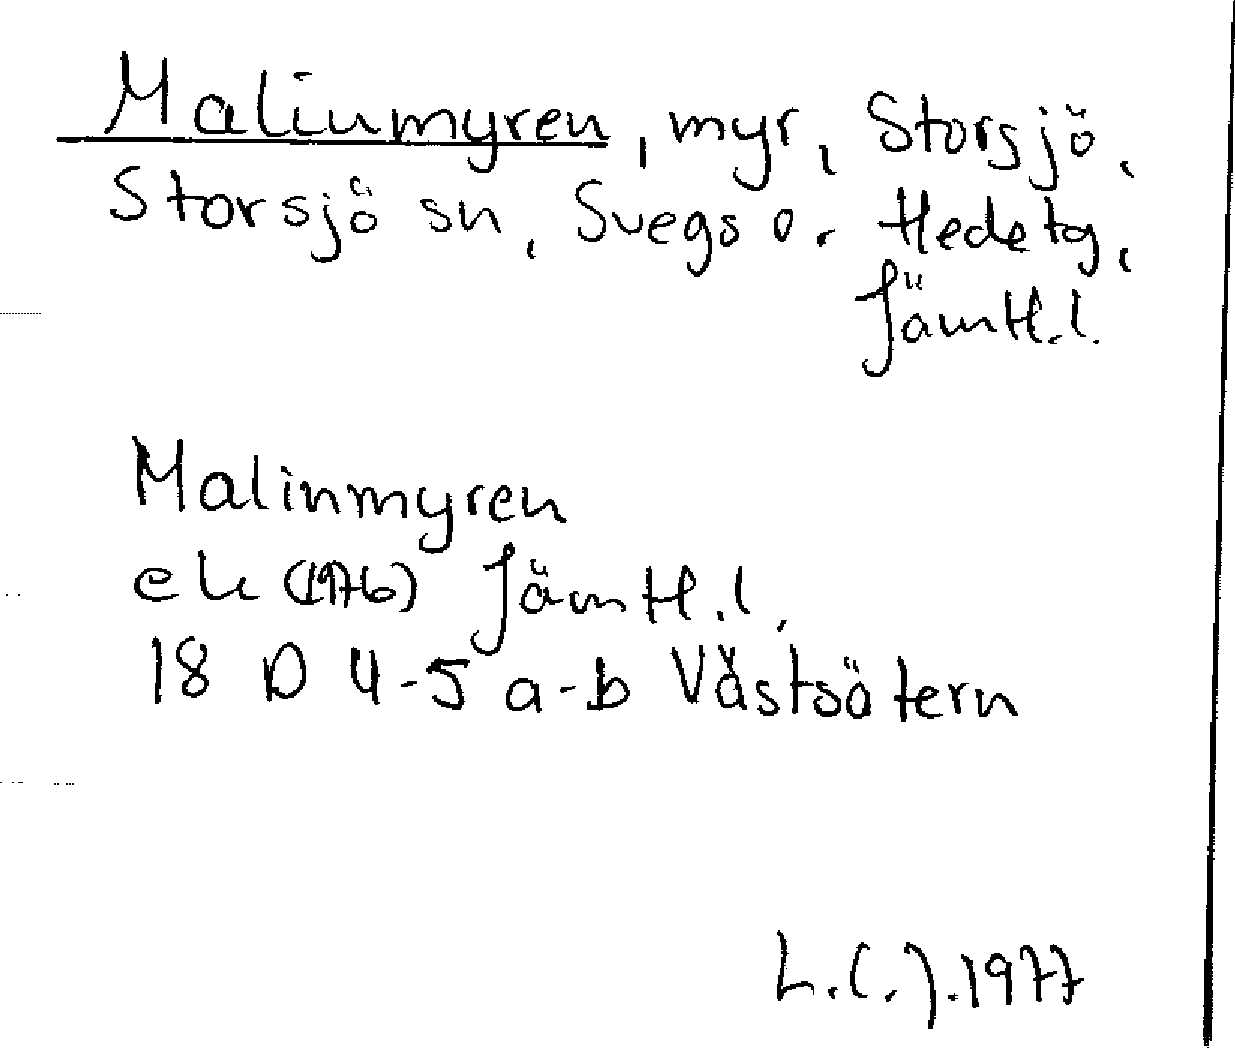 Malinmyren, myr, Storsjö,
Storsjö sn, Svegs o. Hede tg,
Jämtl.l.
Malinmyren
ek (1976) Jämtl.l.,
18 D 4-5 a-b Västsätern
L.C.J. 1977